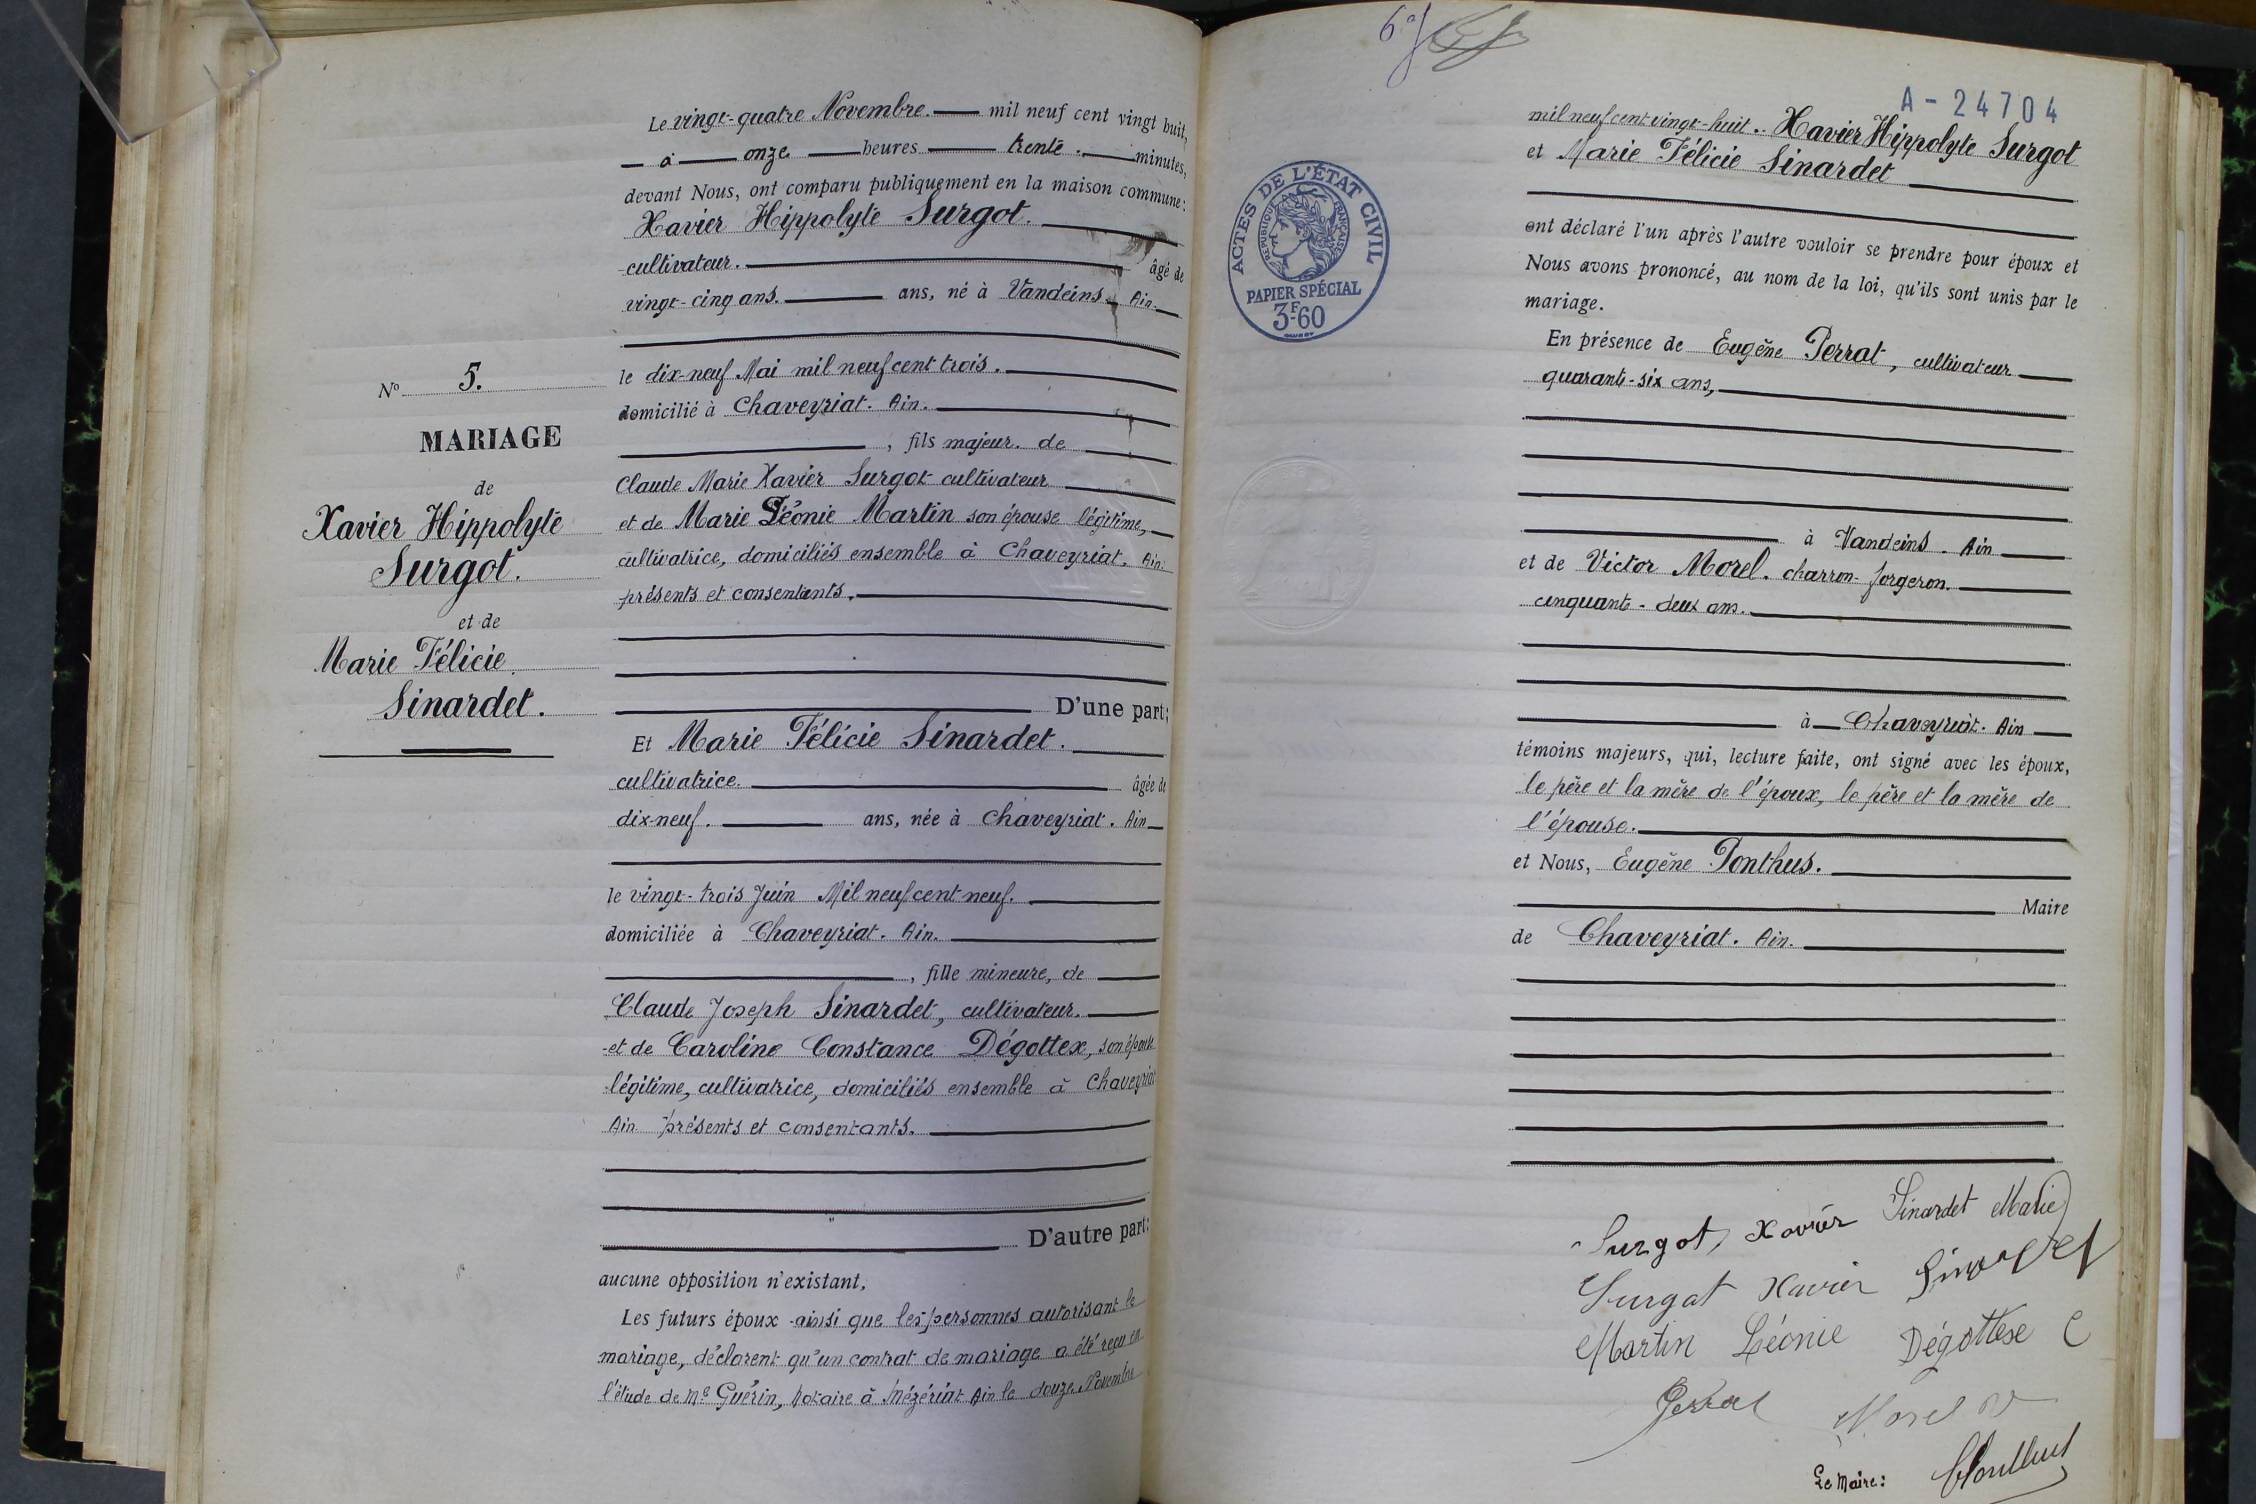 Le vingt-quatre Novembre. mil neuf cent vingt huit,
à onze heures trente. minutes,
devant Nous, ont comparu publiquement en la maison commune:
Xavier Hippolyte Surgot.
cultivateur. âgé de
vingt-cinq ans. ans, né à Vandeins. Ain.
le dix-neuf Mai mil neuf cent trois.
domicilié à Chaveyriat. Ain.
, fils majeur. de
Claude Marie Xavier Surgot cultivateur
et de Marie Léonie Martin son épouse légitime,
cultivatrice, domiciliés ensemble à Chaveyriat. Ain.
présents et consentants.
D'une part;
Et Marie Félicie Sinardet.
cultivatrice. âgée de
dix-neuf. ans, née à Chaveyriat. Ain
le vingt-trois Juin Mil neuf cent neuf.
domiciliée à Chaveyriat. Ain.
, fille mineure, de
Claude Joseph Sinardet, cultivateur.
et de Caroline Constance Dégottex, son épouse
légitime, cultivatrice, domiciliés ensemble à Chaveyriat
Ain présents et consentants.
D'autre part:
aucune opposition n'existant,
Les futurs époux ainsi que les personnes autorisant le
mariage, déclarent qu'un contrat de mariage a été reçu en
l'étude de Me Guérin, notaire à Mézériat Ain le douze Novembre
N° 5.
MARIAGE
de
Xavier Hippolyte
Surgot.
et de
Marie Félicie
Sinardet.
A-24704
ACTES DE L'ÉTAT CIVIL
RÉPUBLIQUE FRANÇAISE
PAPIER SPÉCIAL
3F.60
mil neuf cent vingt-huit.. Xavier Hippolyte Surgot
et Marie Félicie Sinardet
ont déclaré l'un après l'autre vouloir se prendre pour époux et
Nous avons prononcé, au nom de la loi, qu'ils sont unis par le
mariage.
En présence de Eugène Perrat, cultivateur
quarante-six ans,
à Vandeins. Ain
et de Victor Morel. charron-forgeron.
cinquante-deux ans.
à Chaveyriat. Ain
témoins majeurs, qui, lecture faite, ont signé avec les époux,
le père et la mère de l'époux, le père et la mère de
l'épouse.
et Nous, Eugène Ponthus.
Maire
de Chaveyriat. Ain.
Surgot, Xavier Sinardet Marie
Surgot Xavier Sinardet
Martin Léonie Dégottex C
Perrat Morel V
Le Maire: Ponthus